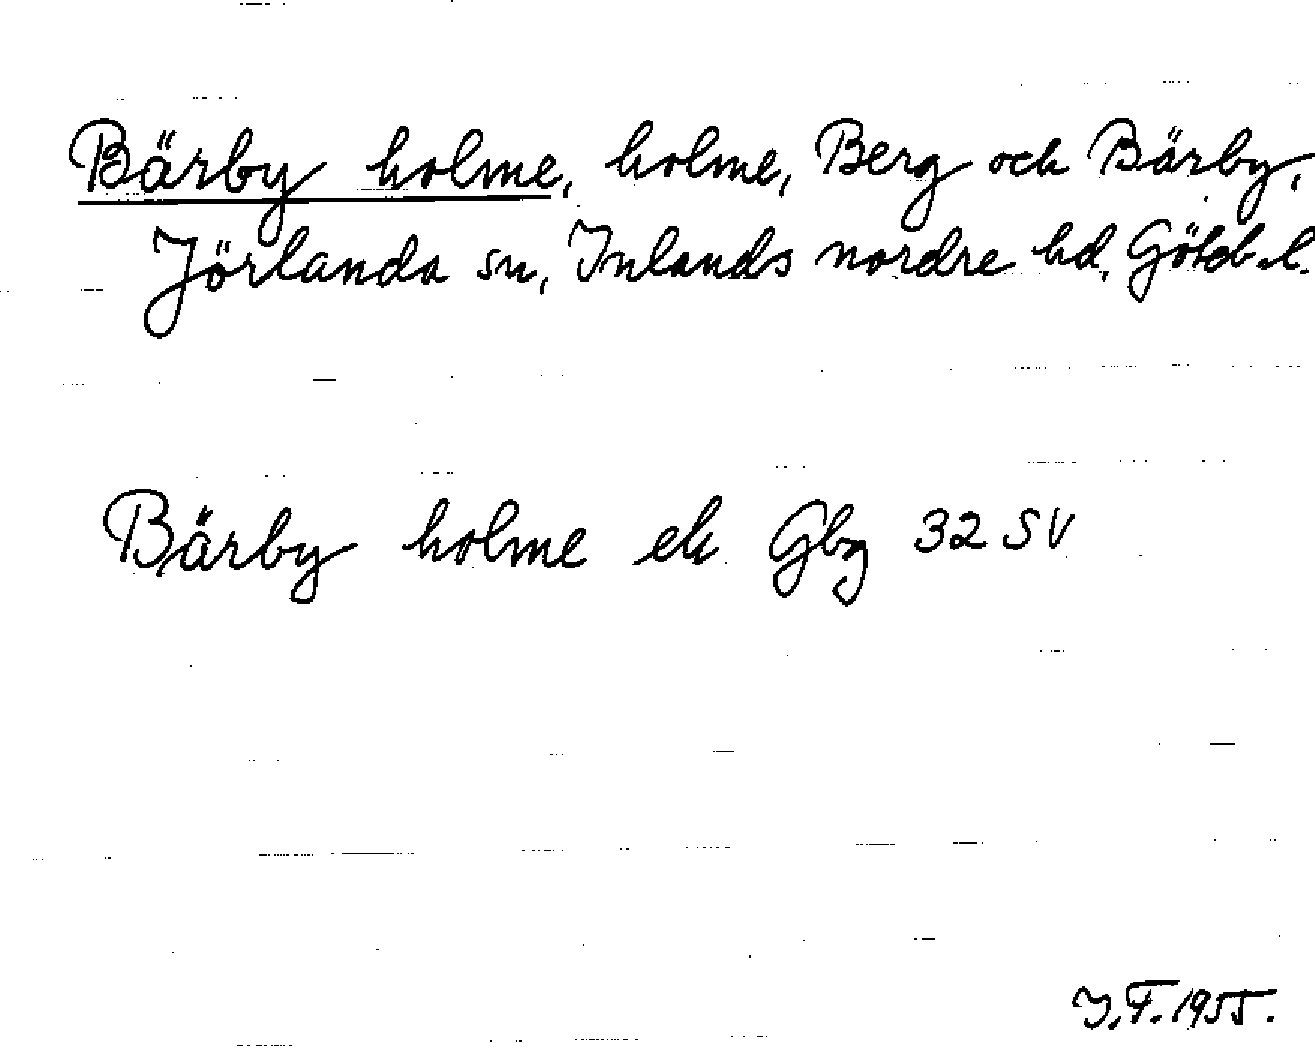 Bärby holme, holme, Berg och Bärby,
Jörlanda sn, Inlands nordre hd, Götebl.
Bärby holme ek Gbg 32 SV
J.F. 1955.